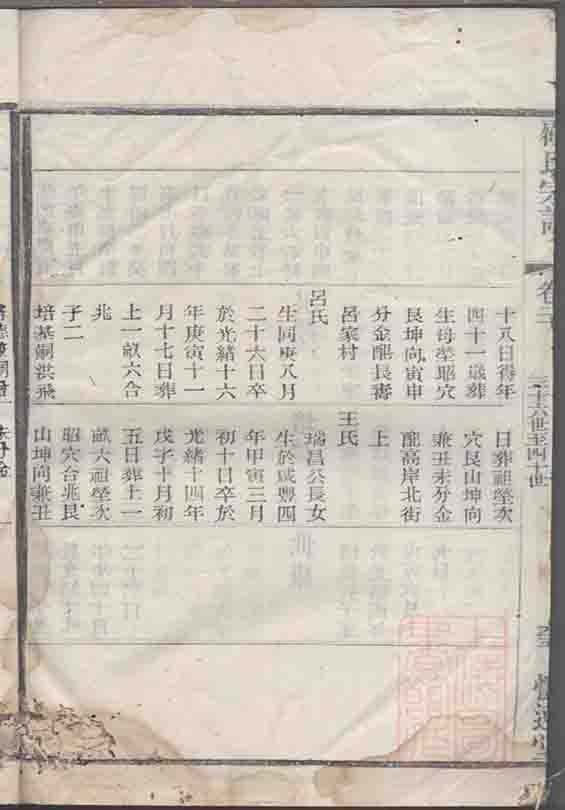 氏宗譜
卷
三十六世至四十世
十八日得年
四十一歲葬
生母塋昭穴
艮坤向寅申
分金醒長壽
呂家村
呂氏
生同庚八月
二十六日卒
於光緒十六
年庚寅十一
月十七日葬
上一畝六合
兆
子二
培基嗣洪飛
日葬祖塋次
穴艮山坤向
兼丑未分金
醒高岸北街
上
王氏
瑞昌公長女
生於咸豐四
年甲寅三月
初十日卒於
光緒十四年
戊子十月初
五日葬上一
畝大祖塋次
昭穴台兆艮
山坤向兼丑